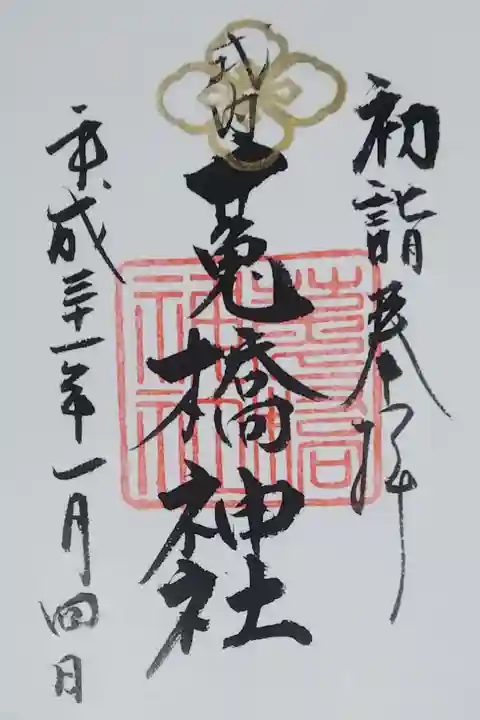 初詣奉拝
式内
莵橋神社
平成三十一年一月四日